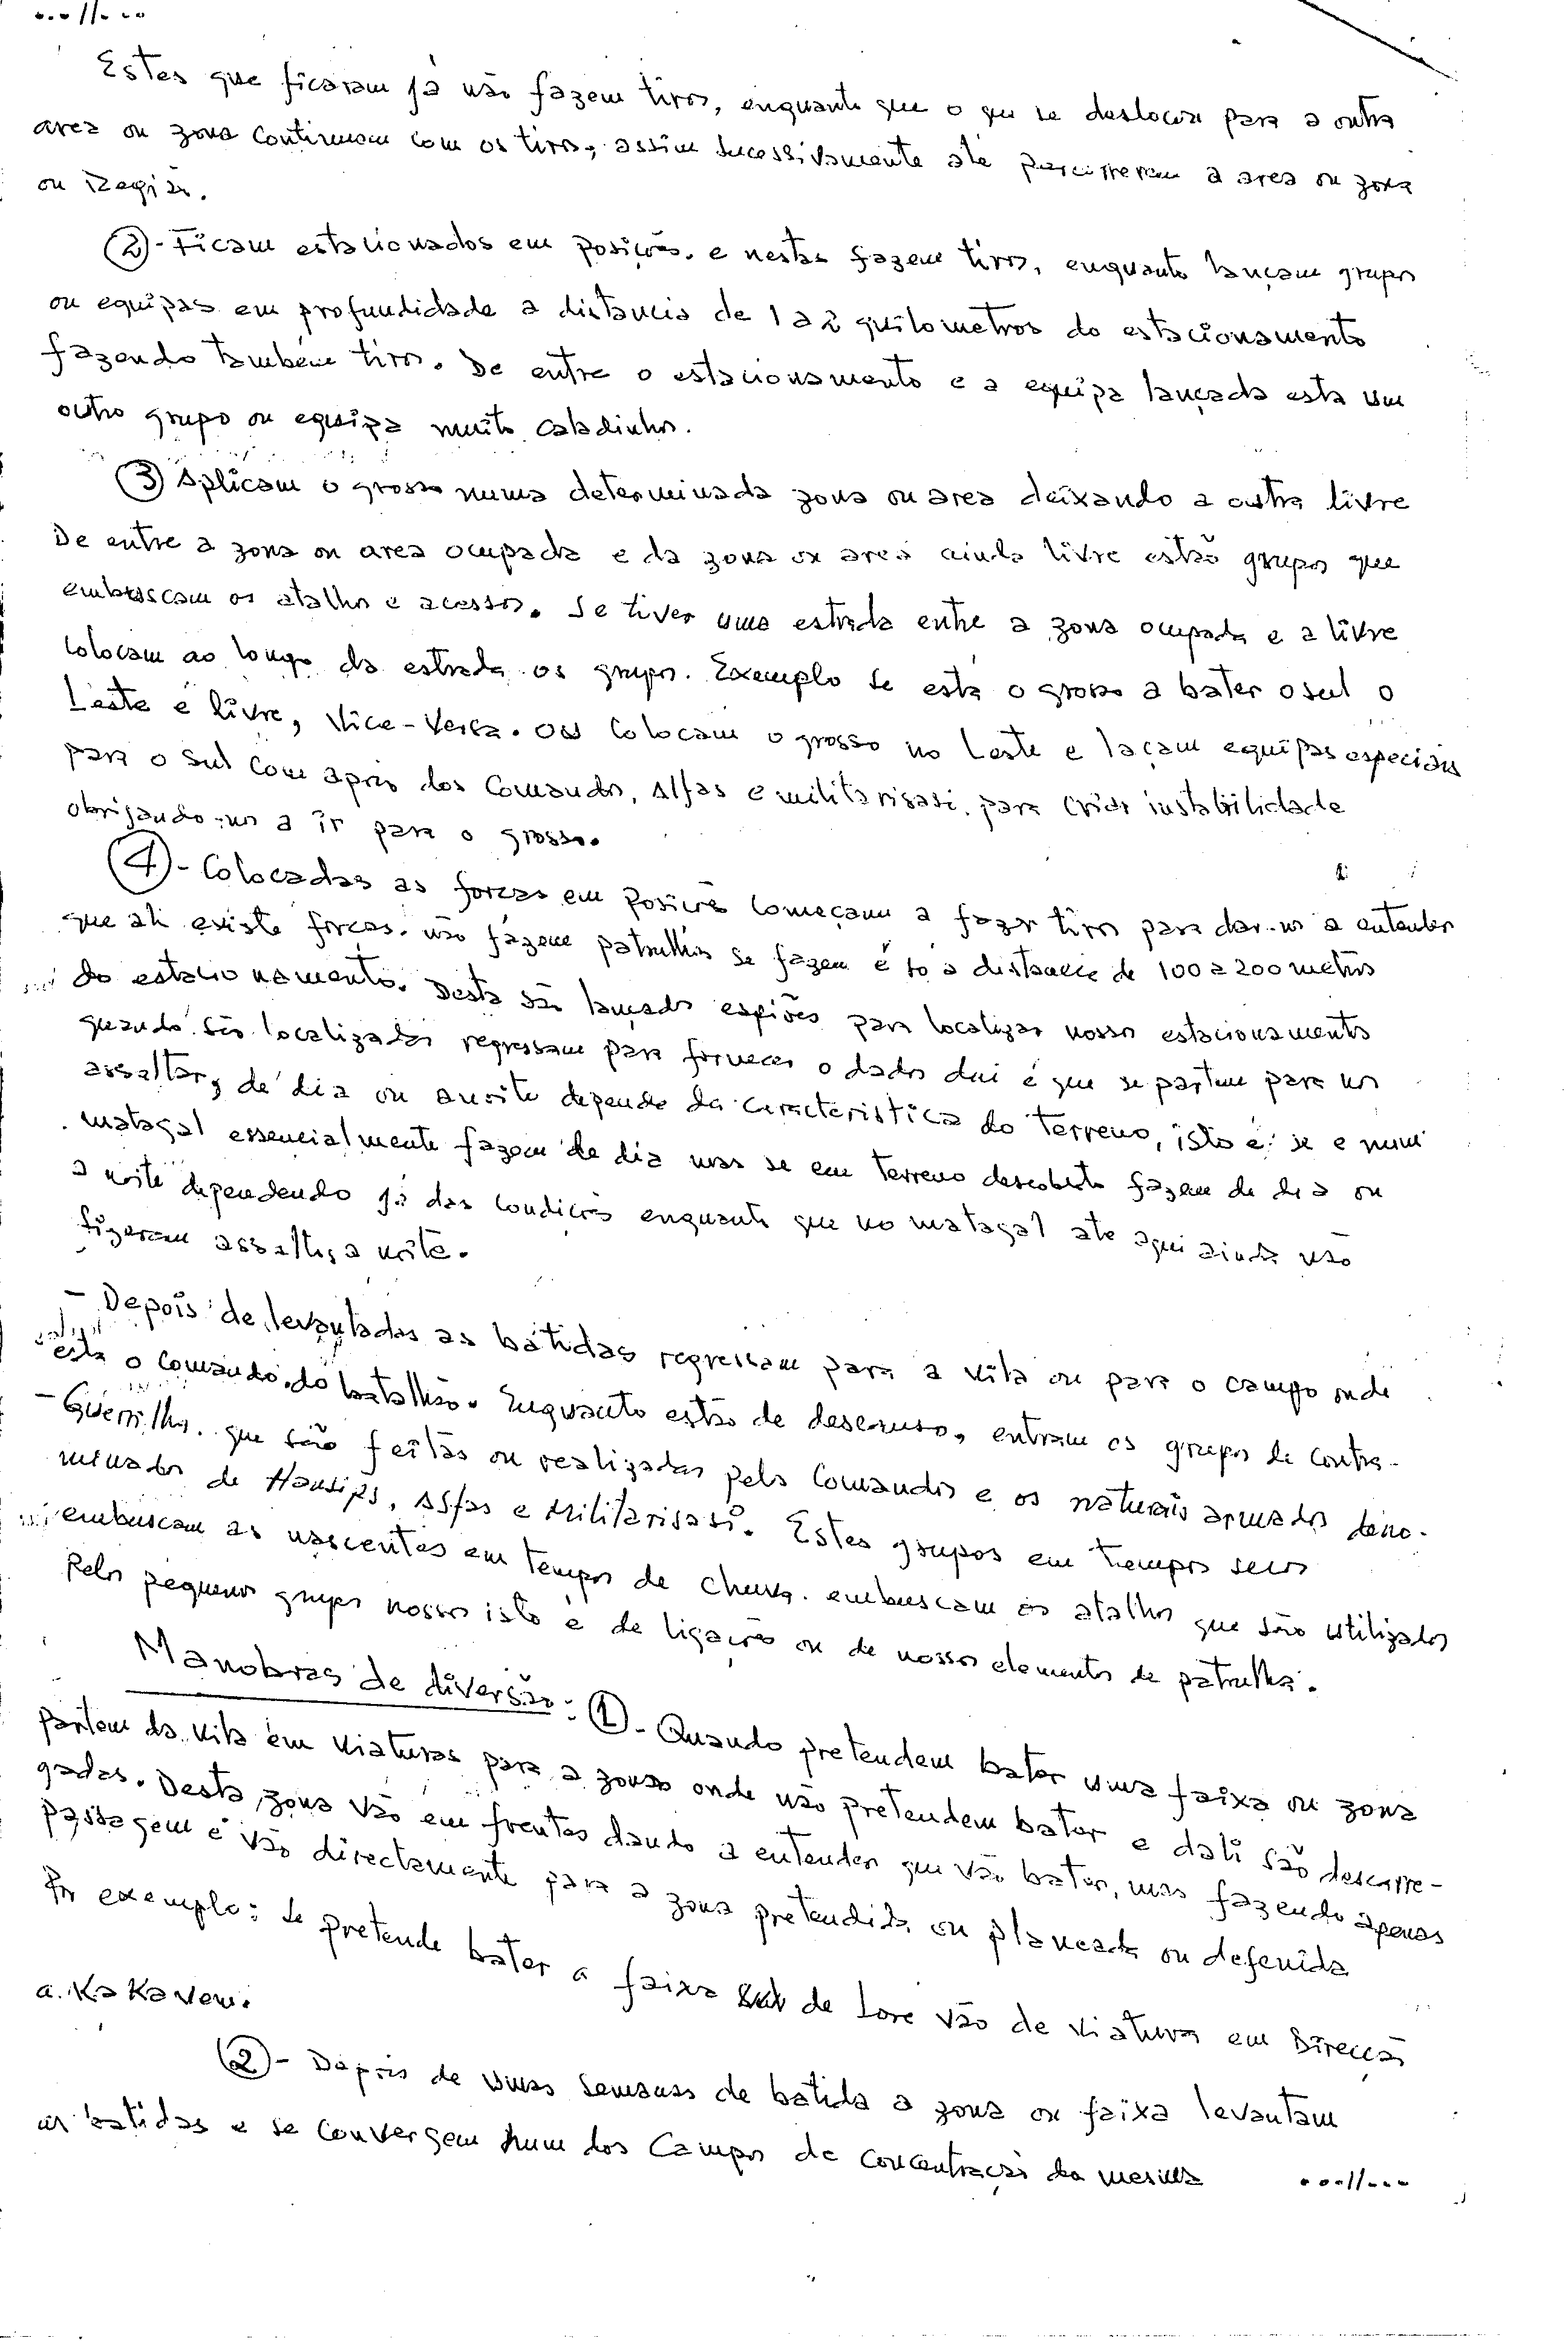 ...//...
Estes que ficaram já não fazem tiros, enquanto que o que se deslocam para a outra
area ou zona continuam com os tiros, assim sucessivamente até percorrerem a area ou zona
ou Região.
(2)- Ficam estacionados em posições. e nestas fazem tiros, enquanto lançam grupos
ou equipas em profundidade a distancia de 1 a 2 quilometros do estacionamento
fazendo também tiros. De entre o estacionamento e a equipa lançada esta um
outro grupo ou equipa muito caladinhos.
(3) Aplicam o grosso numa determinada zona ou area deixando a outra livre
De entre a zona ou area ocupada e da zona ou area ainda livre estão grupos que
embuscam os atalhos e acessos. Se tiver uma estrada entre a zona ocupada e a livre
colocam ao longo da estrada os grupos. Exemplo se está o grosso a bater o sul o
Leste é livre, Vice-Versa. Ou colocam o grosso no Leste e laçam equipas especiais
para o sul com apoio dos Comandos, Alfas e militarisasi. para criar instabilidade
obrigando-nos a ir para o grosso.
(4)- Colocadas as forças em posições começam a fazer tiros para dar-nos a entender
que ali existe forças. não fazem patrulhas se fazem é só a distancia de 100 a 200 metros
do estacionamento. Desta são lançados espiões para localizar nossos estacionamentos
quando são localizados regressam para fornecer o dados dai é que se partem para nos
assaltar, de dia ou a noite depende da caracteristica do terreno, isto é: se e num
matagal essencialmente fazem de dia mas se em terreno descoberto fazem de dia ou
a noite dependendo já das condições enquanto que no matagal ate aqui ainda não
fizeram assaltos a noite.
- Depois de levantadas as batidas regressam para a vila ou para o campo onde
está o comando do batalhão. Enquanto estão de descanso, entram os grupos de contra-
- Guerrilha. que são feitas ou realizadas pelos Comandos e os naturais armados deno-
minados de Hansips, Alfas e Militarisasi. Estes grupos em tempos secos
embuscam as nascentes em tempos de chuva. embuscam os atalhos que são utilizados
Pelos pequenos grupos nossos isto é de ligação ou de nossos elementos de patrulha.
Manobras de diversão: (1)- Quando pretendem bater uma faixa ou zona
partem da vila em viaturas para a zona onde não pretendem bater e dali são descarre-
gadas. Desta zona vão em frentes dando a entender que vão bater, mas fazendo apenas
passagem e vão directamente para a zona pretendida ou planeada ou defenida
Por exemplo: se pretende bater a faixa sul de Lore vão de viaturas em Direcção
a. KaKaven.
(2)- Depois de umas semanas de batida a zona ou faixa levantam
as batidas e se convergem num dos Campos de concentração da mesma ...//...